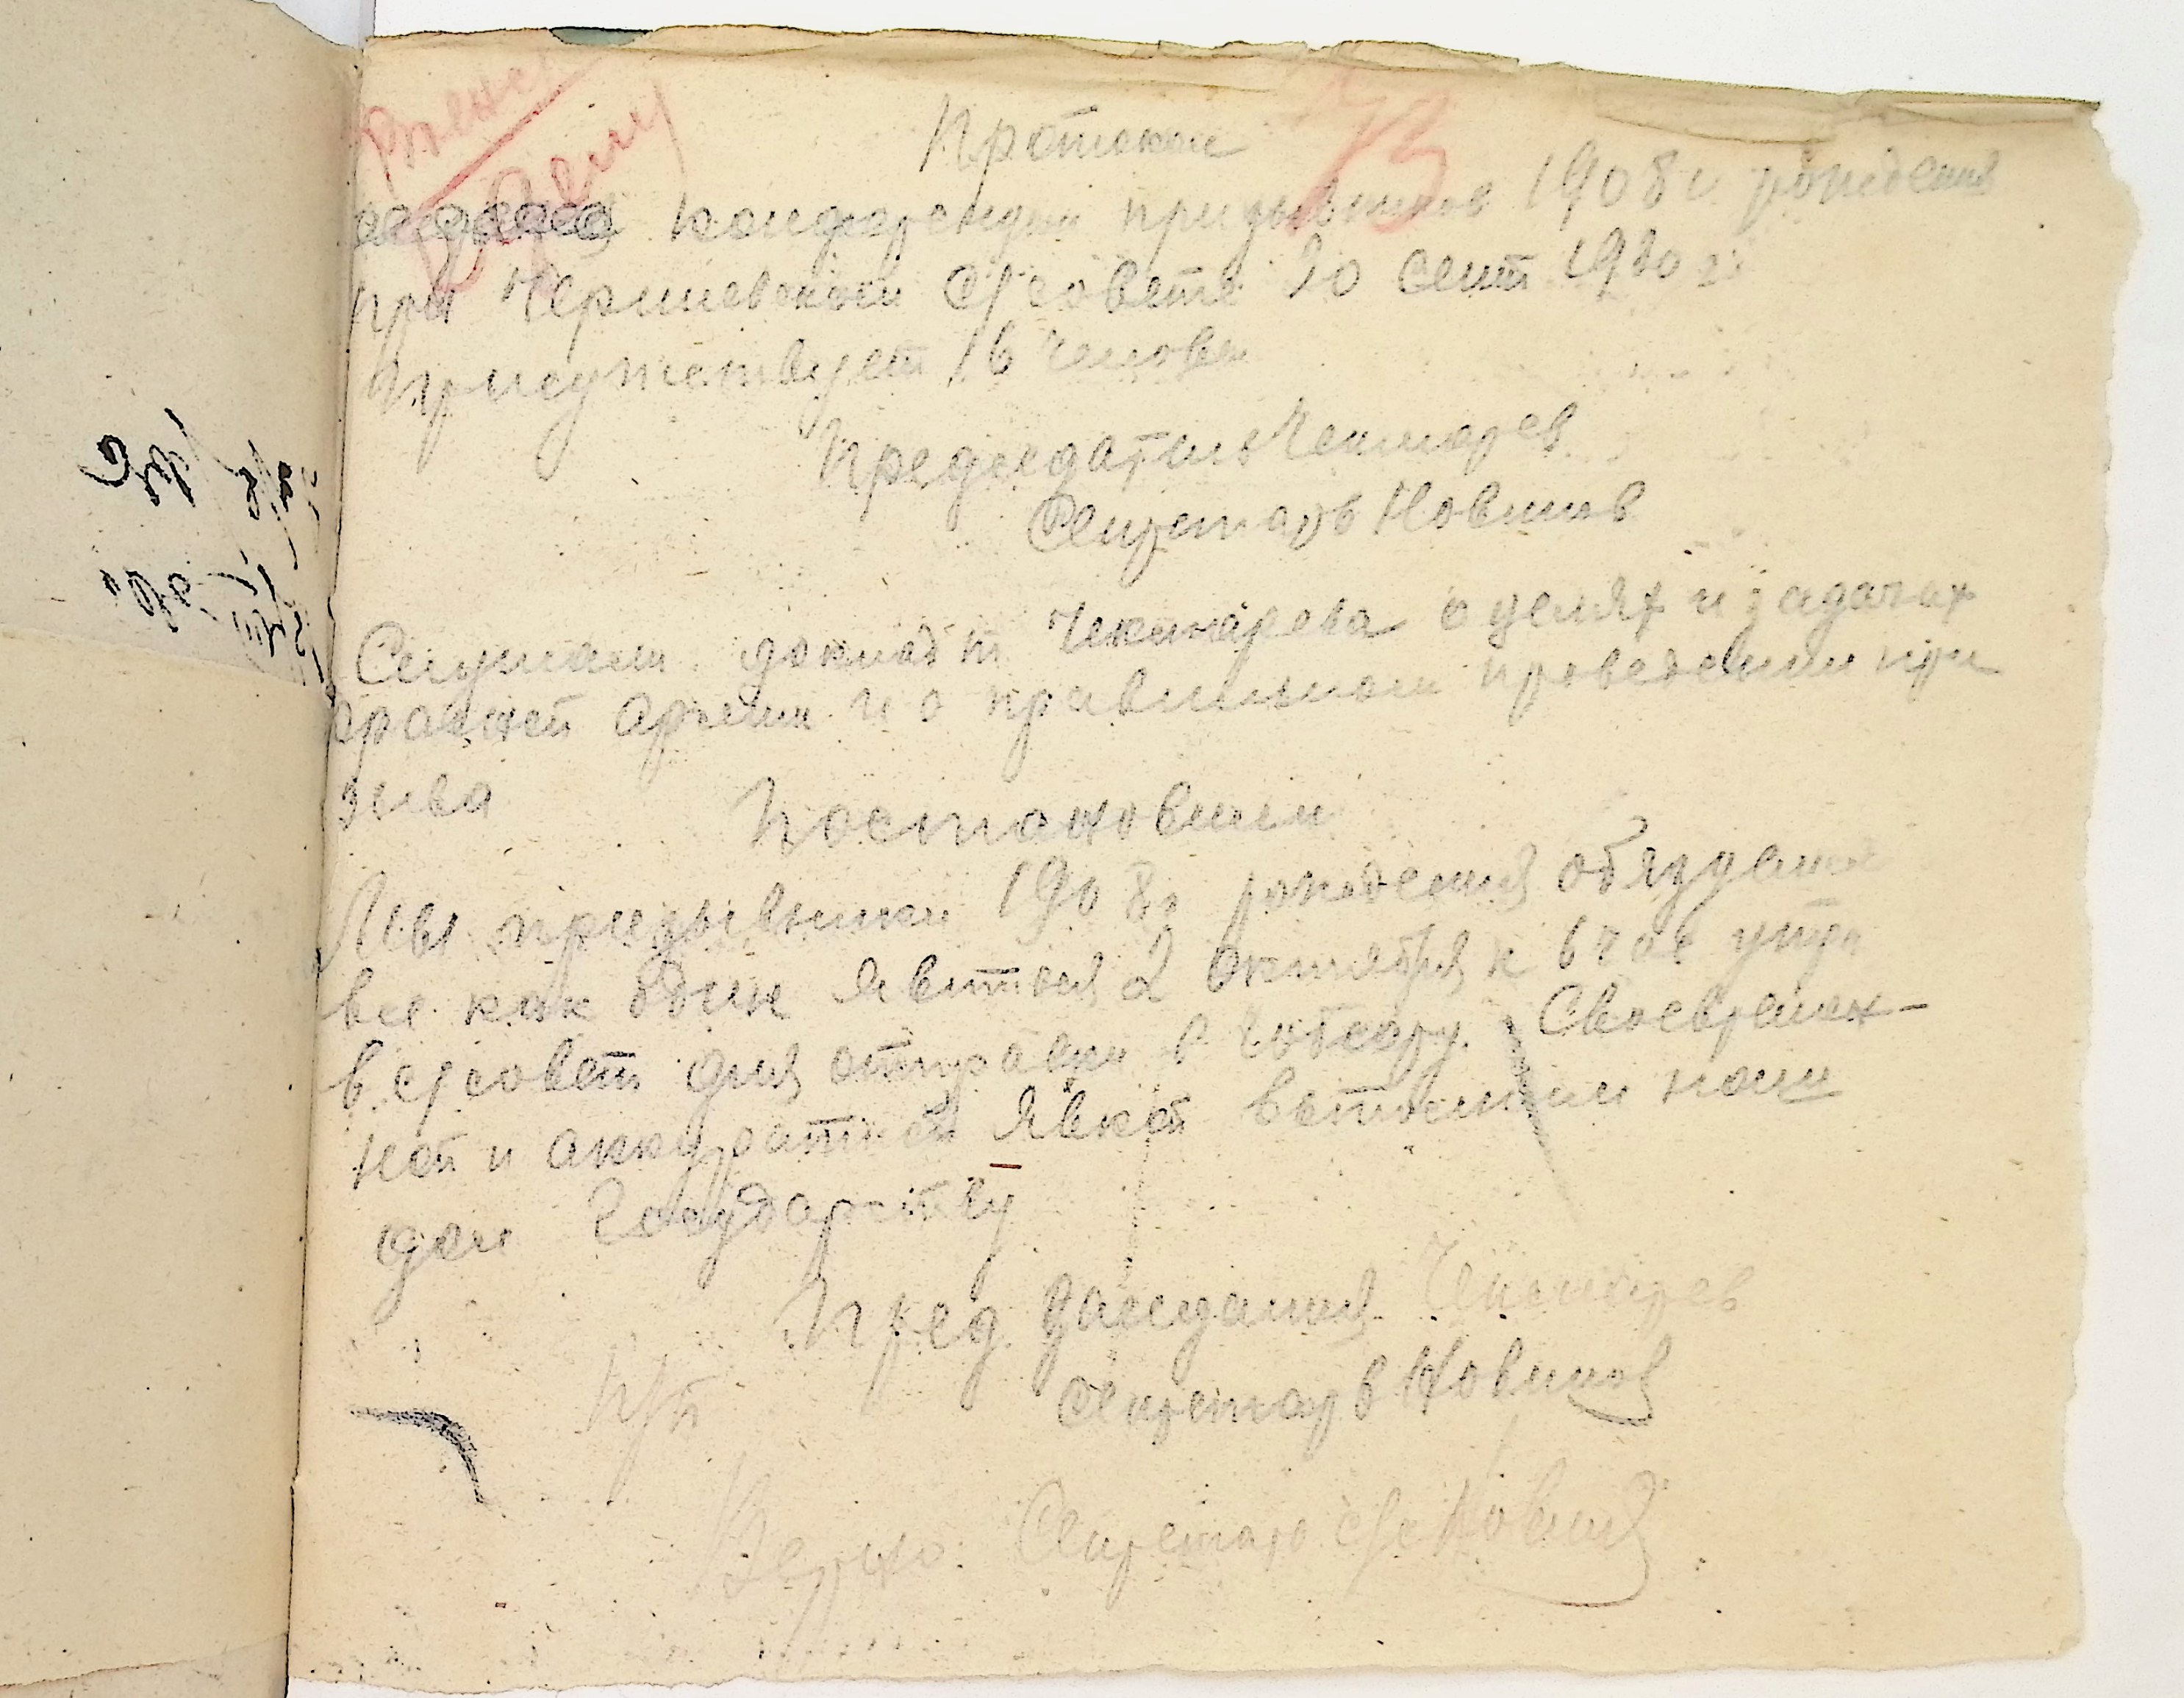 Протокол 73
конференции призывников 1908 г рождения
при с/совете 30 сент 1930 г.
Присуществует 16 человек
Председатель Чекмарев
Секретарь Новиков
Слушали доклад т Чекмарева о целях и задачах
красной армии и о правильном проведении при
зыва
Постановили
Мы призывники 1908 г рождения обязуемся
все как один явиться 2 октября к 6 час утра
в с/совет для отправки в Своевремен-
ной и аккуратной явкой наш
долг Государству
Пред заседания Чекмарев
Секретарь Новиков
П/п
Верно: Секретарь с/с Новиков